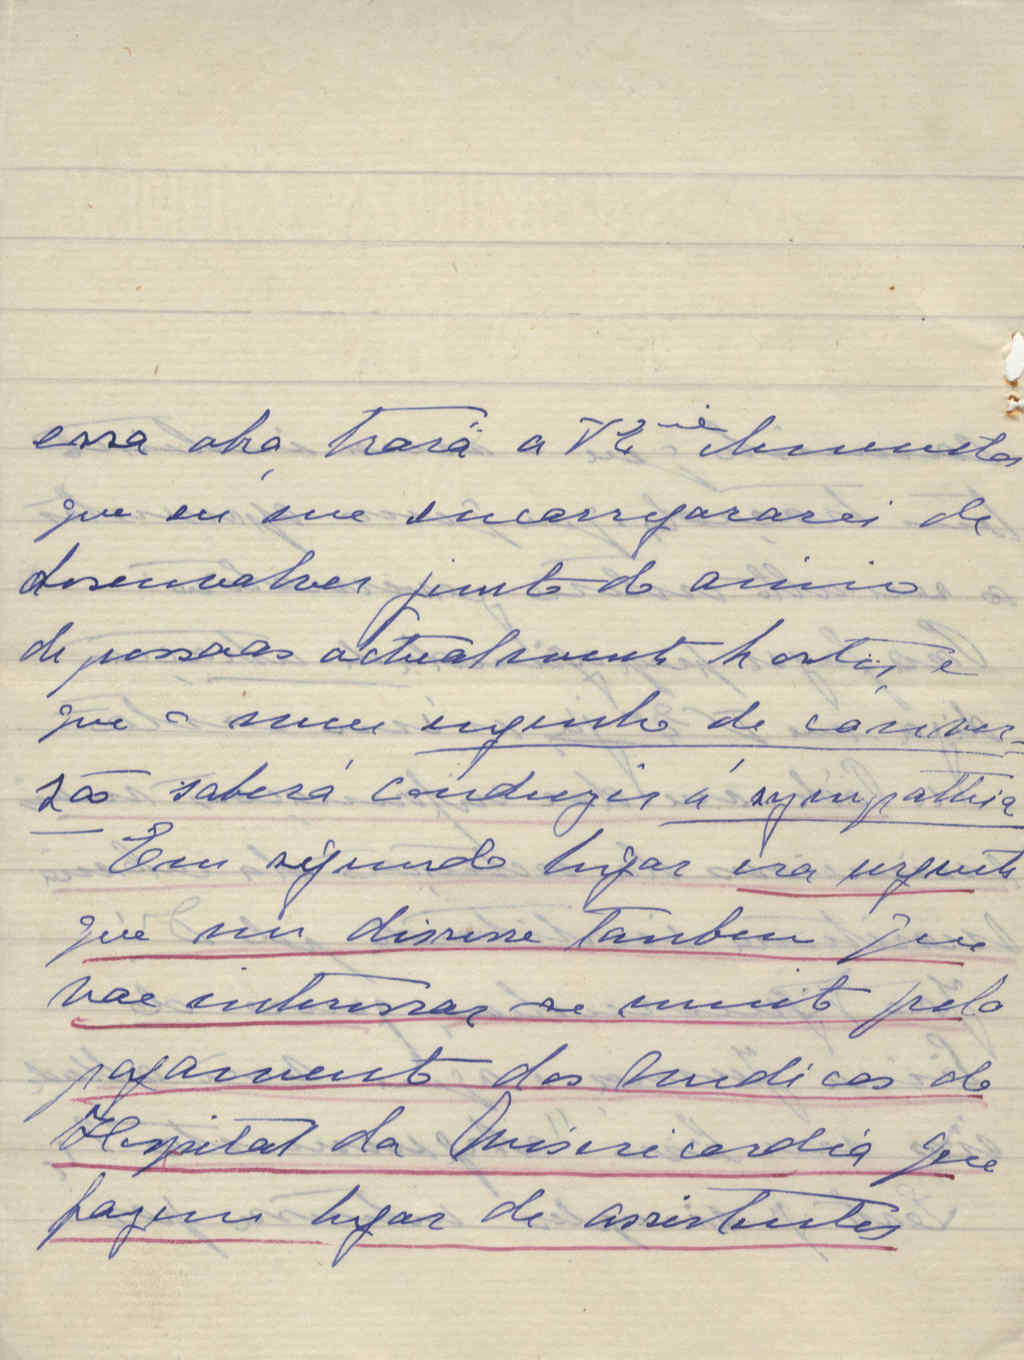 essa obra trará a V Exª elementos
que eu me encarregararei de
desenvolver junto do animo
de pessoas actualmente hostis, e
que o meu engenho de conver-
são saberá conduzir á sympathia
Em segundo lugar era urgente
que me dissesse tambem que
vae interessar se muito pelo
pagamento dos medicos do
Hospital da Misericordia que
fazem lugar de assistentes